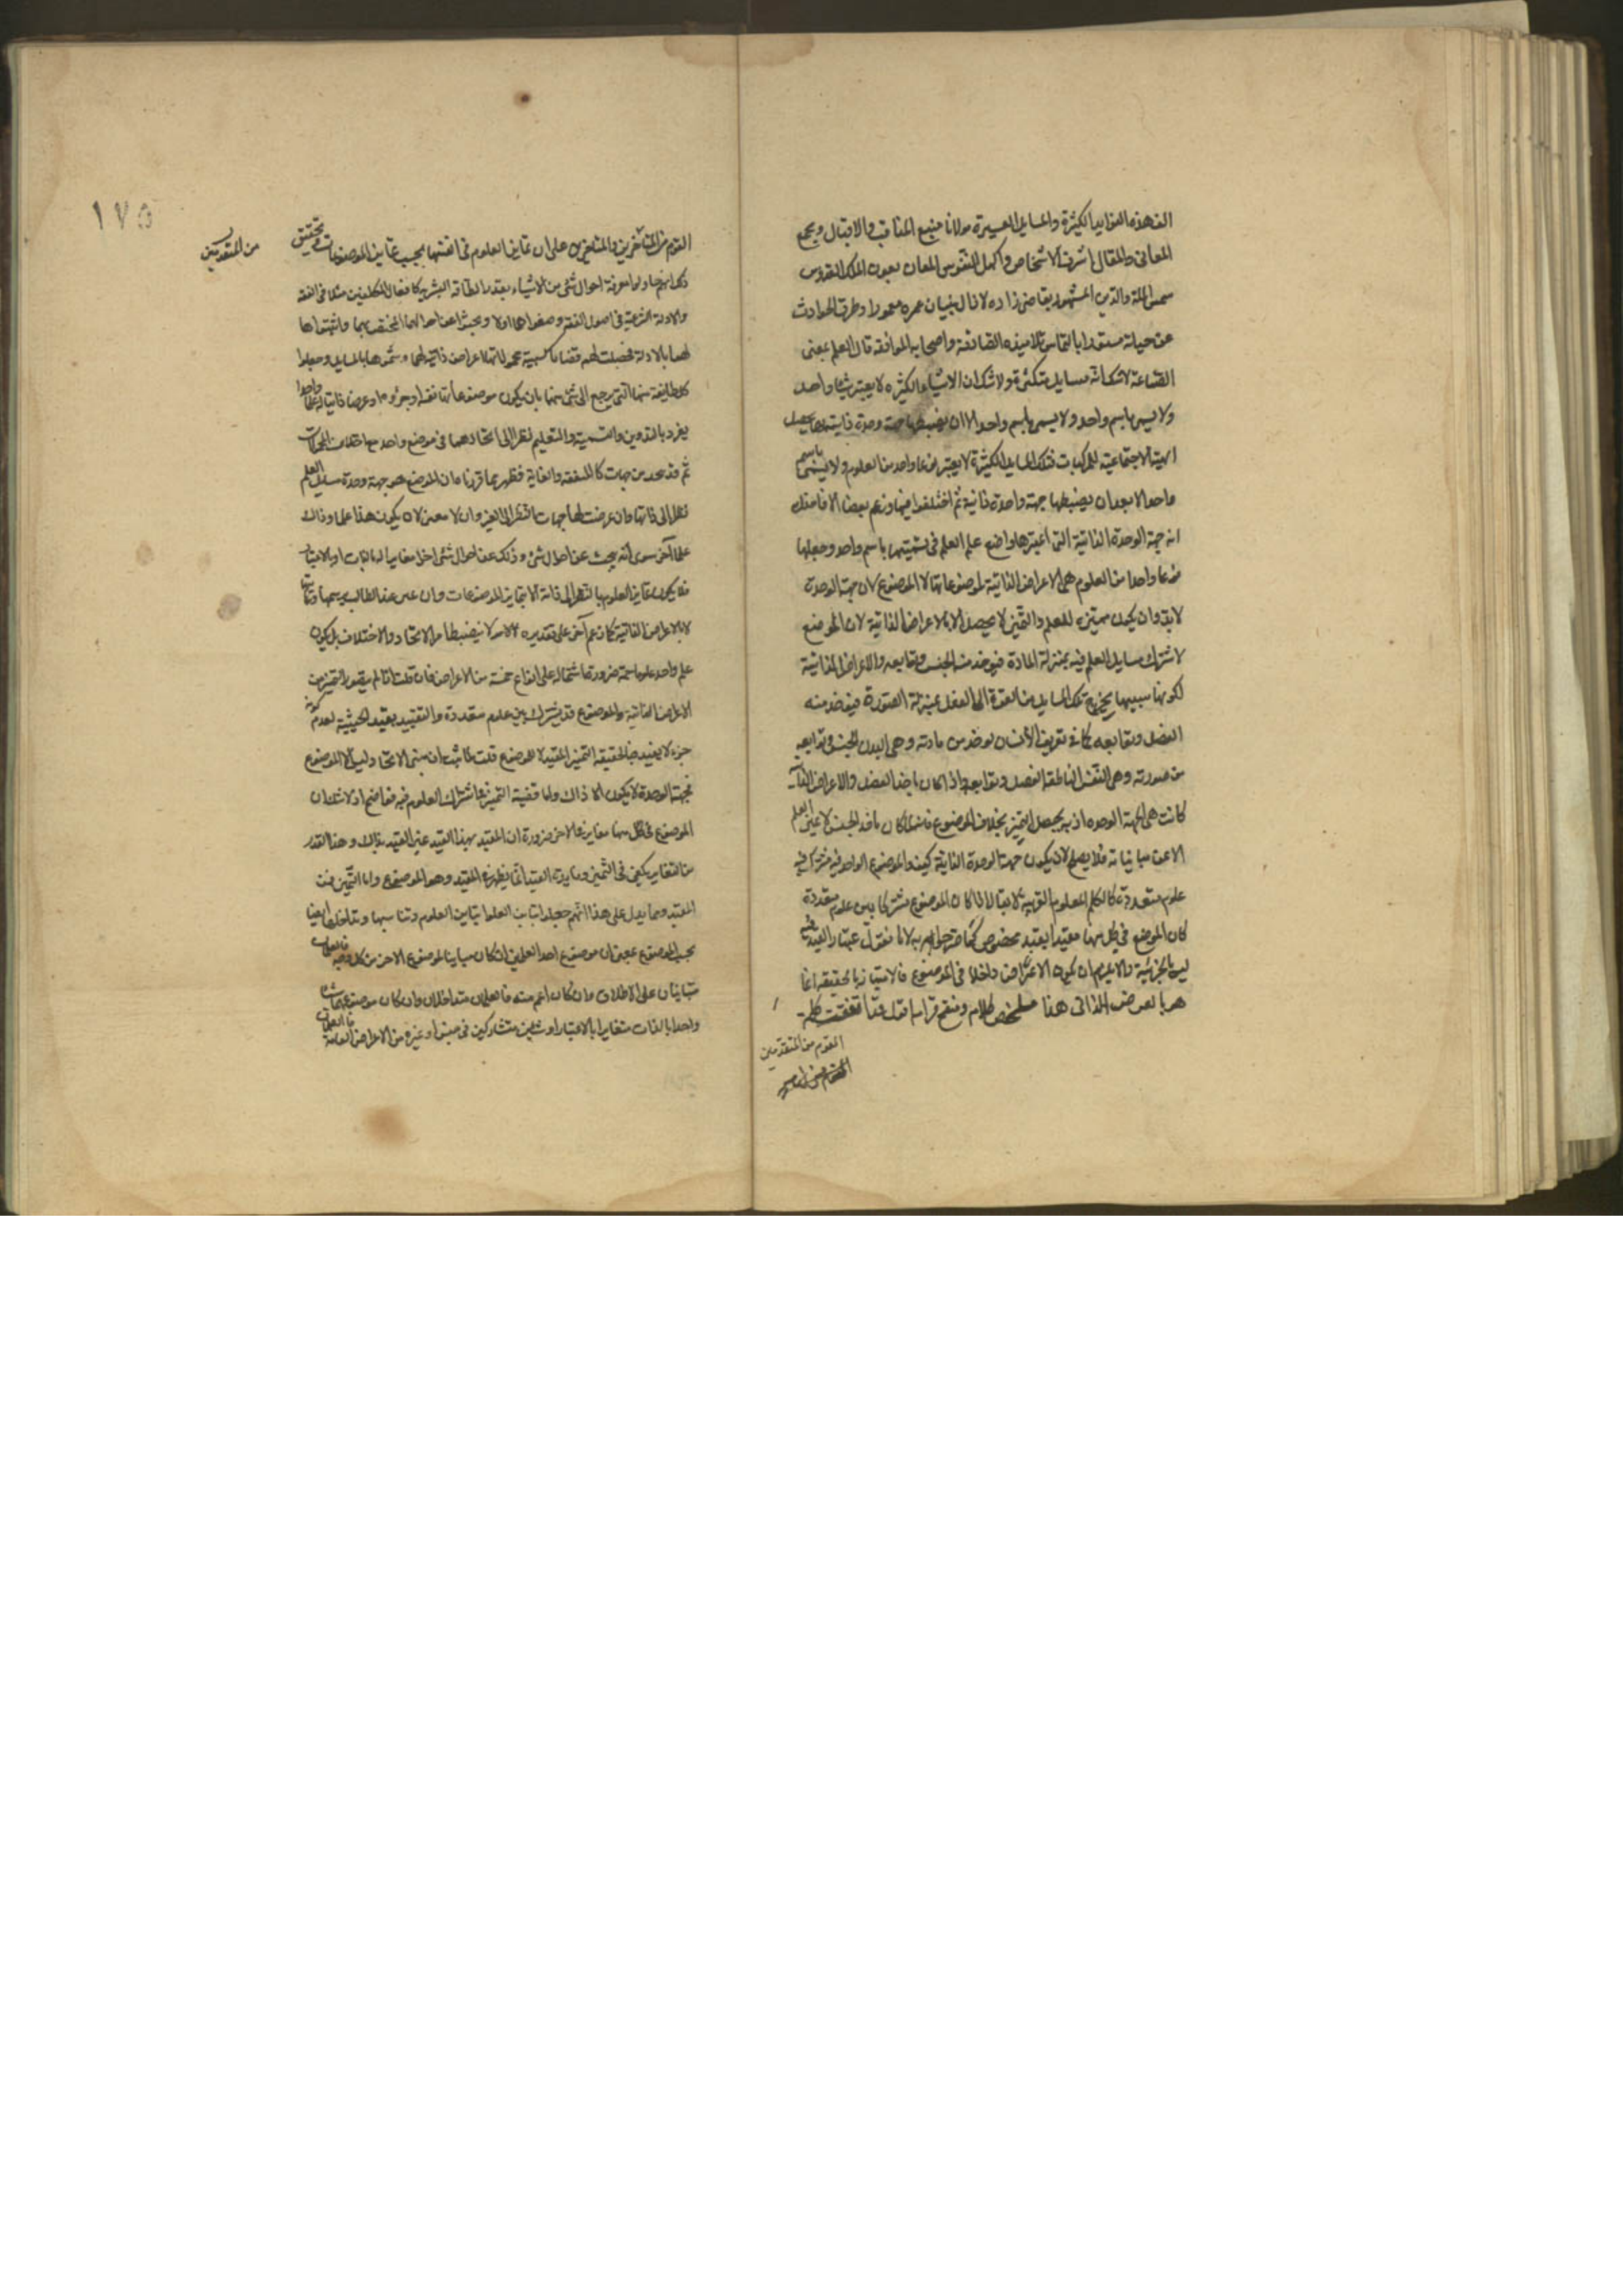 الف هذه الفوايد الكثيرة والمسايل العسيرة مولانا منبع المناقب والاقبال ومجمع
المعانى والمقال اشرف الاشخاص واكمل النفوس المعان بعون الملك القدوس
شمس الملة والدين المشهور بقاضى زاده لا زال بنيان عمره معمورا وطرق الحوادث
عن حياته مستورا بالتماس تلاميذه الصادقة واصحابه الموافقة قال العلم بمعنى
الصناعة لا شك انه مسايل متكثرة ولا شك ان الاشياء الكثيرة لا يعتبر شيئا واحد
ولا يسمى باسم واحد ولا يسمى باسم واحد الا ان يضبطها جهة وحدة ذاتية لها يحصل
الهيئة الاجتماعية للمركبات فتلك المسايل الكثيرة لا يعتبر نوعا واحدا من العلوم ولا يسمى باسم
واحد الا بعد ان يضبطها جهة واحدة ذاتية ثم اختلفوا فيها وزعم بعض الافاضل
ان جهة الوحدة الذاتية التى اعتبرها واضع علم العلم فى تسميتها باسم واحد وجعلها
نوعا واحدا من العلوم هى الاعراض الذاتية لموضوعاتها لا الموضوع لان جهة الوحدة
لا بد وان يكون مميزة للعلم والتميز لا يحصل الا بالاعراض الذاتية لان الموضوع
لاشتراك مسايل العلم فيه بمنزلة المادة فيوخذ منه الجنس وتوابعه والاعراض الذاتية
لكونها سببها يخرج تلك المسايل من القوة الى الفعل بمنزلة الصورة فيوخذ منه
الفصل وتوابعه كما فى تعريف الانسان يوخذ من مادته وهى البدن الجنس وتوابعه
من صورته وهى النفس الناطقة الفصل وتوابعه واذا كان ماخذ الفصل والاعراض الذاتية
كانت هى الجهة الوحدة اذ به يحصل التميز بخلاف الموضوع فانه لما كان ماخذ الجنس لا يميز العلم
الا عن مبايناته فلا يصلح لان يكون جهة الوحدة الذاتية كيف والموضوع الواحد فيه مشترك فيه
علوم متعددة كالكلم للعلوم العربية لا يقال لما كان الموضوع مشتركا بين علوم متعددة
كان الموضوع فى كل منها مقيدا بقيد مخصوص كما صرحوا به لانا نقول اعتبار القيد فيه
ليس بالجزئية والا يلزم ان يكون الاعراض داخلا فى الموضوع فالامتياز بالحقيقة انما
هو بالعرض الذاتى هذا ملخص كلامه ومنقح مرامه اقول قد اتفقت كلمة
القوم من المتقدمين
القوم من المتأخرين والمتقدمين على ان تمايز العلوم فى انفسها بحسب تمايز الموضوعات وتحقيق
من المتقدمين
ذلك انهم حاولوا معرفة احوال شئ من الاشياء بقدر الطاقة البشرية كافعال المكلفين مثلا فى الفقه
والادلة الشرعية فى اصول الفقه وضعوها اولا وبحثوا عن احوالهما المختصة بهما واثبتوها
لهما بالادلة فحصلت لهم قضايا كسبية محمولاتها اعراض ذاتية لهما وسموها بالمسايل وجعلوا
كل طايفة منها التى يرجع الى شئ منها بان يكون موضوعاتها نفسه او جزؤه او عرضا ذاتيا له علما واحدا
يفرد بالتدوين والتسمية والتعليم نظرا الى اتحادهما فى موضوع واحد مع اختلاف المحمولات
ثم قد يحد من جهات كالمنفعة والغاية فظهر بما قررناه ان الموضوع هو جهة وحدة مسايل العلم
نظرا الى ذاتها وان عرضت لها جهات بالنظر الى الغير وان لا معنى لان يكون هذا علما وذاك
علما آخر سوى انه يبحث عن احوال شئ وذلك عن احوال شئ اخر مغاير له بالذات او بالاعتبار
فلا يكون تمايز العلوم بالنظر الى ذاته الا بتمايز الموضوعات
لا بالاعراض الذاتية كما زعم
علم واحد علوما جمة ضرورة اشتماله على انواع جمة من الاعراض فان قلت
الاعراض الذاتية والموضوع قد يشترك بين علوم متعددة والتقييد بقيد الحيثية لعدم كونه
جزء لا يفيد فى الحقيقة التميز المقيد للموضوع قلت
فجهة الوحدة لا يكون الا ذاك واما قضية التميز فيما اشتراك العلوم فيه فواضح اذ لا شك ان
الموضوع فى كل منها مغاير فى الاخر ضرورة ان المقيد بهذا القيد غير المقيد بذاك وهذا القدر
من التغاير يكفى فى التميز وفايدة القيد انما يظهر فى المقيد وهو الموضوع واما التميز فمن
المقيد ومما يدل على هذا انهم جعلوا تباين العلوم وتناسبها وتداخلها ايضا
بحسب الموضوع بمعنى ان موضوع احد العلمين ان كان مباينا لموضوع الاخر من كل وجه فالعلمان
متباينان على الاطلاق وان كان اعم منه فالعلمان متداخلان وان كان موضوعهما شيئا
واحدا بالذات متغايرا بالاعتبار او شيئين متشاركين فى جنس او غيره من الاعراض العامة فالعلمان
١٧٥